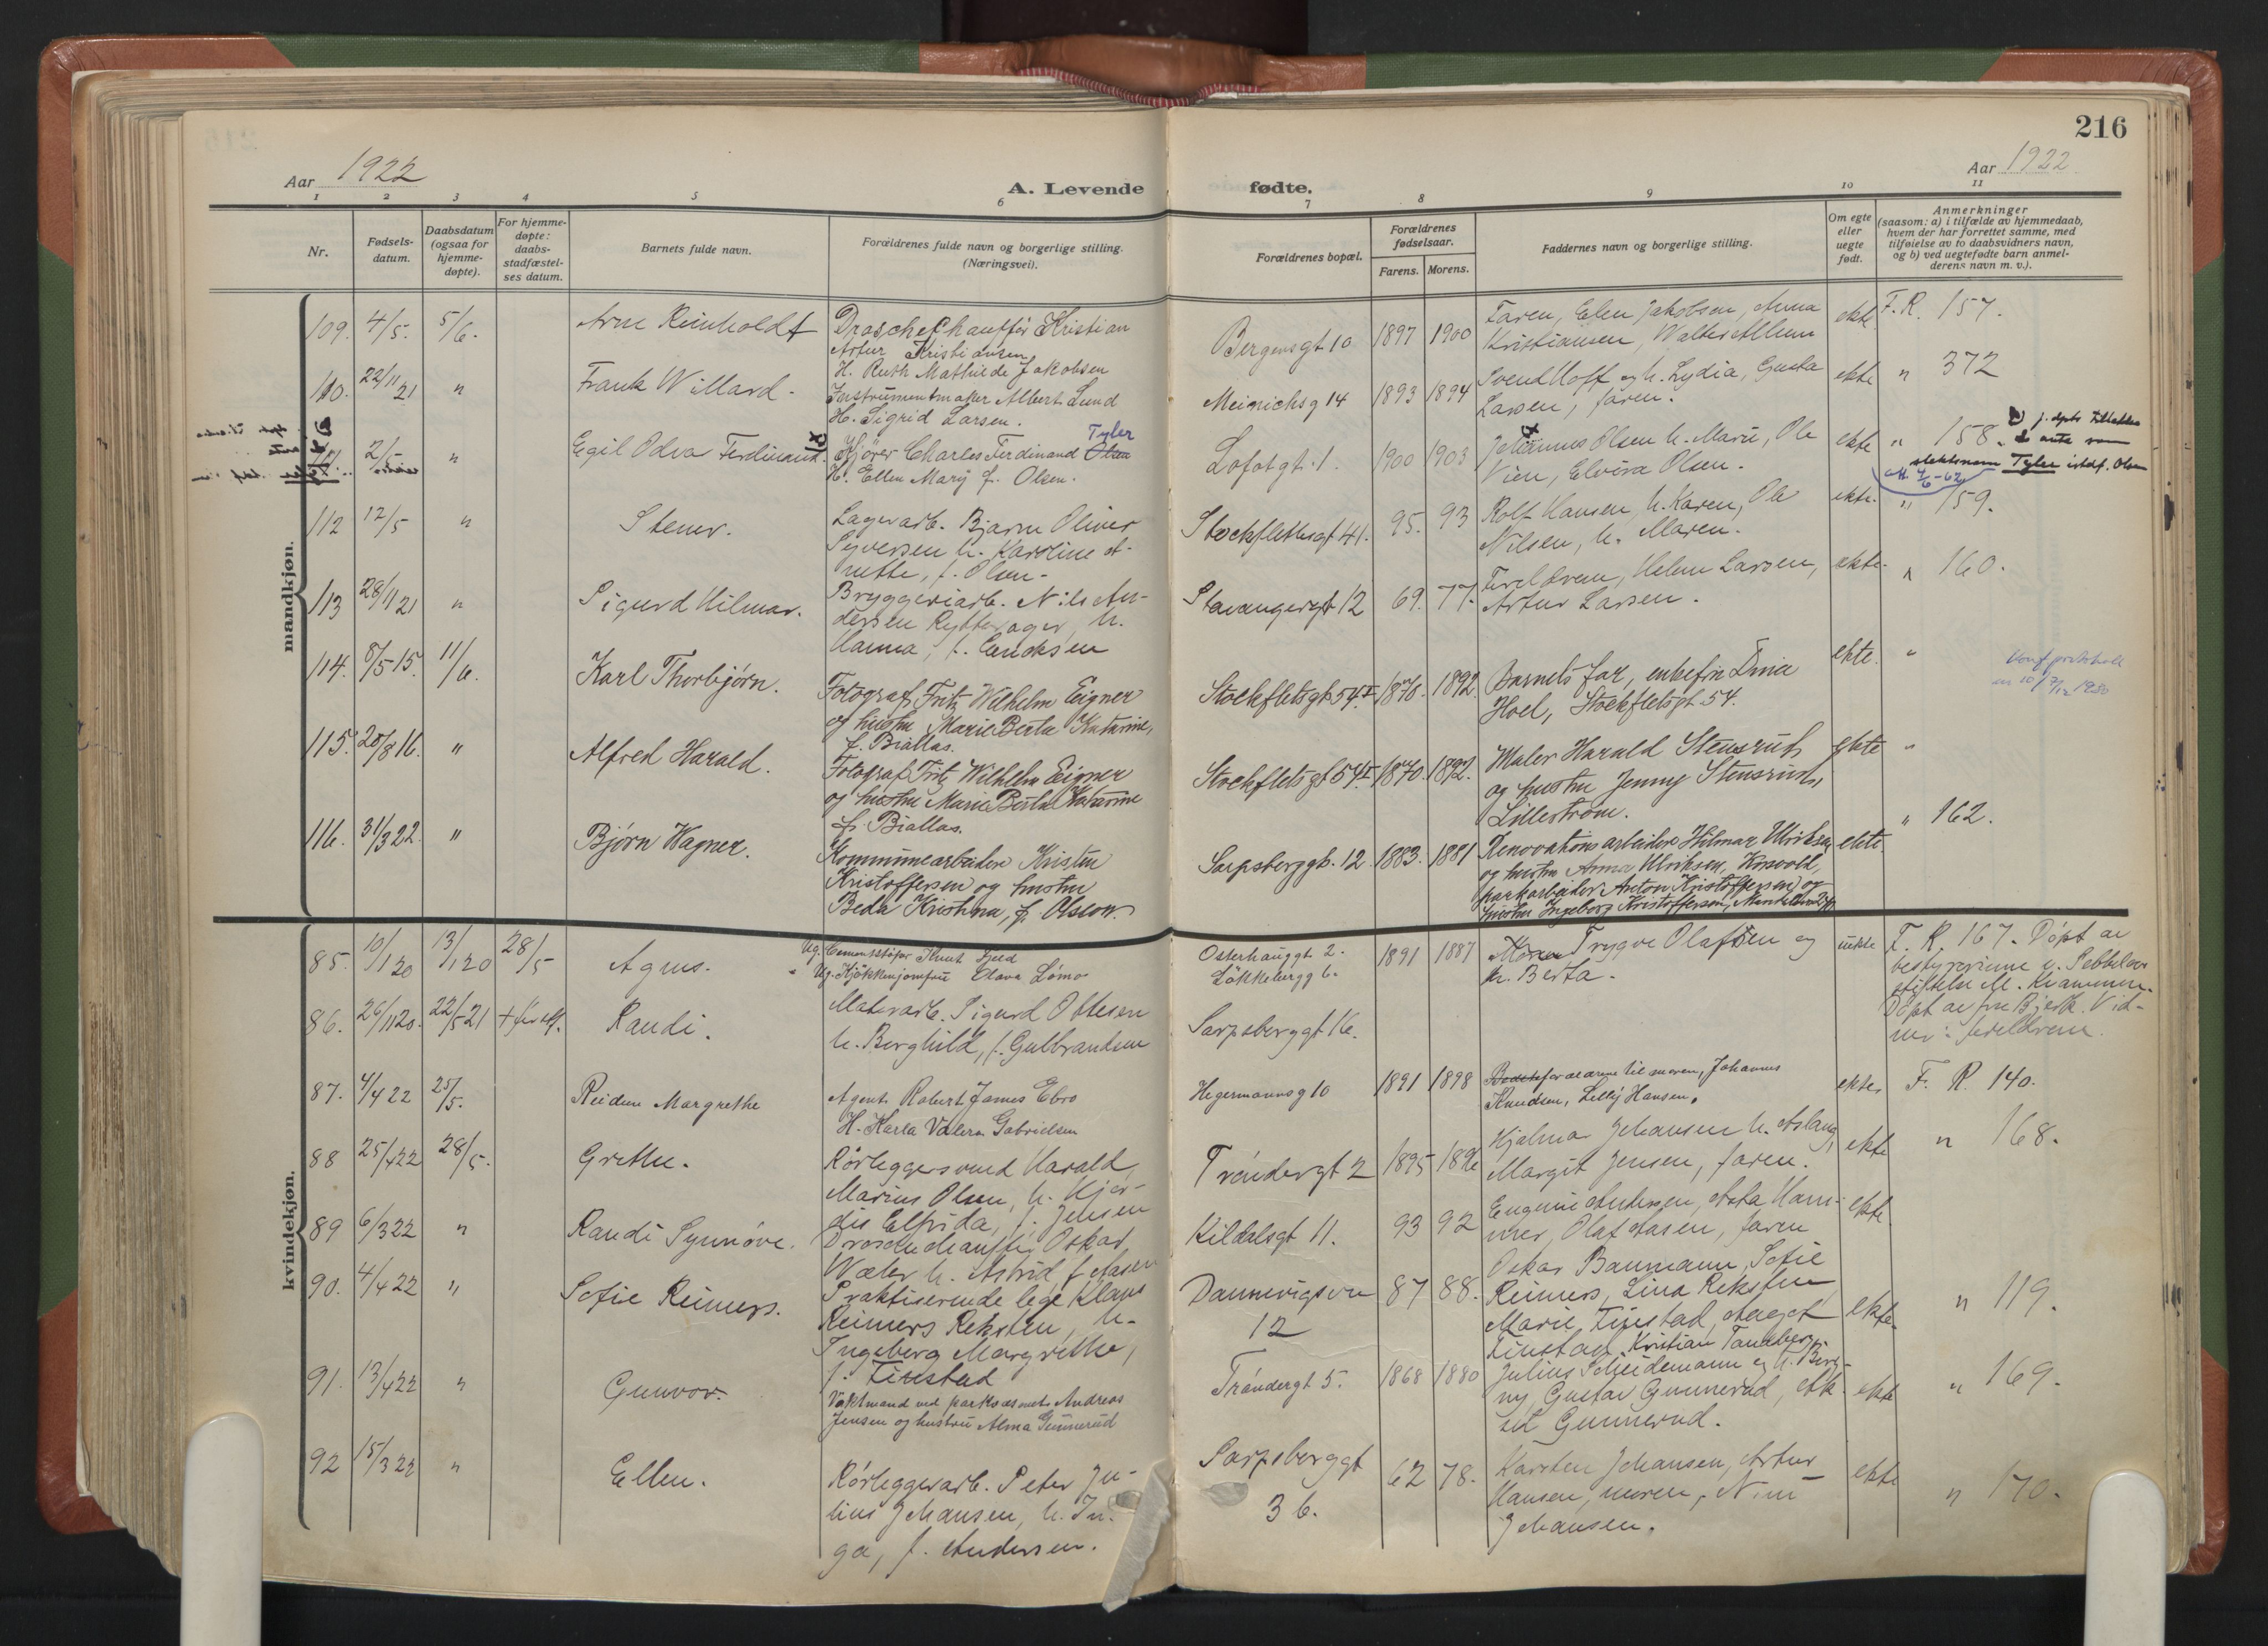 216
Aar 1922
A. Levende fødte.
Aar 1922
1 2 3 4 5 6 7 8 9 10 11
Nr.
Fødsels-
datum.
Daabsdatum
(ogsaa for
hjemme-
døpte).
For hjemme-
døpte:
daabs-
stadfæstel-
ses datum.
Barnets fulde navn.
Forældrenes fulde navn og borgerlige stilling.
(Næringsvei).
Forældrenes bopæl.
Forældrenes
fødselsaar.
Farens. Morens.
Faddernes navn og borgerlige stilling.
Om egte
eller
uegte
født.
Anmerkninger
(saasom: a) i tilfælde av hjemmedaab,
hvem der har forrettet samme, med
tilføielse av to daabsvidners navn,
og b) ved uegtefødte barn anmel-
derens navn m. v.).
mandkjøn.
109. 4/5. 5/6. Arne Reinholdt
Droschechauffør Kristian
Artur Kristiansen
H. Ruth Mathilde Jakobsen
Bergensgt 10 1897 1900
Faren, Elen Jakobsen, Anna
Kristiansen, Walter
ekte F. R. 157.
110. 22/11 21 " Frank Willard.
Instrumentmaker Albert Lund
H. Sigrid Larsen.
Meinichsg 14 1893 1894
Svend Hoff og h. Lydia, Gusta
Larsen, faren.
ekte " 372
111 2/5 " Egil Odva Ferdinand.
Tyler
Kjører Charles Ferdinand Olsen
H. Ellen Mary f. Olsen.
Lofotgt. 1. 1900 1903
Johannes Olsen h. Marie, Ole
Vien, Elvira Olsen.
ekte " 158.
slektsnavn Tyler istdf. Olsen
112 12/5 " Stener.
Lagerarb. Bjarne Oliver
Syversen h. Karoline A-
nette, f. Olsen-
Stockflethsgt 41. 95. 93
Rolf Hansen h. Karen, Ole
Nilsen, h. Maren.
ekte. " 159.
113 28/11 21 " Sigurd Hilmar.
Bryggeriarb. Nils An-
dersen Rytterager, h.
Hanna, f. Eriksen
Stavangergt 12 69. 77.
Foreldrene, Helene Larsen,
Artur Larsen.
ekte. " 160.
114. 8/5 15. 11/6. Karl Thorbjørn.
Fotograf Fritz Wilhelm Eigner
og hustru Marie Berta Katarine,
f. Biallas.
Stockfletsgt 54 I 1870. 1892.
Barnets far, enkefru Dina
Hoel, Stockfletsgt 54.
ekte. "
115. 20/8 16. " Alfred Harald.
Fotograf Fritz Wilhelm Eigner
og hustru Marie Berta Katarine
f. Biallas.
Stockfletsgt 54 I 1870. 1892.
Maler Harald Stensrud
og hustru Jenny Stensrud,
Lillestrøm.
ekte "
116. 31/3 22. " Bjørn Wagner.
Kommunearbeider Kristen
Kristoffersen og hustru
Beda Kristina, f. Olsson.
Sarpsborggt. 12 1883. 1881
Renovationsarbeider Hilmar Ulriksen
og hustru Anna Ulriksen,
parkarbeider Anton Kristoffersen og
hustru Ingeborg Kristoffersen,
ekte. " 162.
kvindekjøn.
85. 10/1 20 13/1 20 28/5 Agnes.
Ug. Cementstøper Knut Fjeld
Ug. Kjøkkenjomfru Olava Lømo
Osterhausgt 2.
Løkkeberggg 6.
1891 1887
Moren Trygve Olafsen og
h. Berta.
uekte F. R. 167. Døpt av
bestyrerinne v. Sebbelow
stiftelse M. Kvammen.
86. 26/11 20. 22/5 21 Randi.
Malerarb. Sigurd Ottesen
h. Borghild, f. Gulbrandsen
Sarpsborggt 16.
Døpt av fru Bjerk. Vid-
ner: foreldrene.
87. 4/4 22 25/5. Reidun Margrethe
Agent Robert James Ebro
H. Karla Valera Gabrielsen
Hegermannsg 10 1891 1898
Bedsteforældrene til moren, Johannes
Knudsen, Lelly Hansen.
ekte F. R. 140.
88 25/4 22 28/5. Grethe.
Rørleggersvend Harald
Marius Olsen, h. Hjør-
dis Elfrida, f. Jensen
Trøndergt 2 1895 1896
Hjalmar Johansen h. Aslaug,
Margit Jensen, faren.
ekte " 168.
89 6/3 22 " Randi Synnøve.
Droschechauffør Oskar
Wæler h. Astrid f. Aasen
Kildalsgt 11. 93 92
Eugenie Andersen, Asta Ham-
mer, Olaf Aasen, faren
ekte
90. 4/4 22 " Sofie Reimers.
Praktiserende lege Klaus
Reimers Reksten, h.
Ingeborg Margrethe,
f. Finstad
Dannevigsvn
12
87 88.
Oskar Baumann, Sofie
Reimers, Lina Reksten
Marie Finstad, Aagot
Finstad, Kristian Tandberg.
ekte. " 119.
91. 13/4 22 " Gunvor.
Vaktmand ved parkvæsenet Andreas
Jensen og hustru Alma Gunnerud
Trøndergt 5. 1868 1880
Julius Scheidemann og h. Borg-
ny, Gustav Gunnerud,
Gunnerud.
ekte " 169.
92 15/3 22 " Ellen.
Rørleggerarb. Peter Ju-
lius Johansen, h. In-
ga, f. Andersen.
Sarpsborggt
36.
62 78.
Karsten Johansen, Artur
Hansen, moren,
Johansen.
ekte " 170.